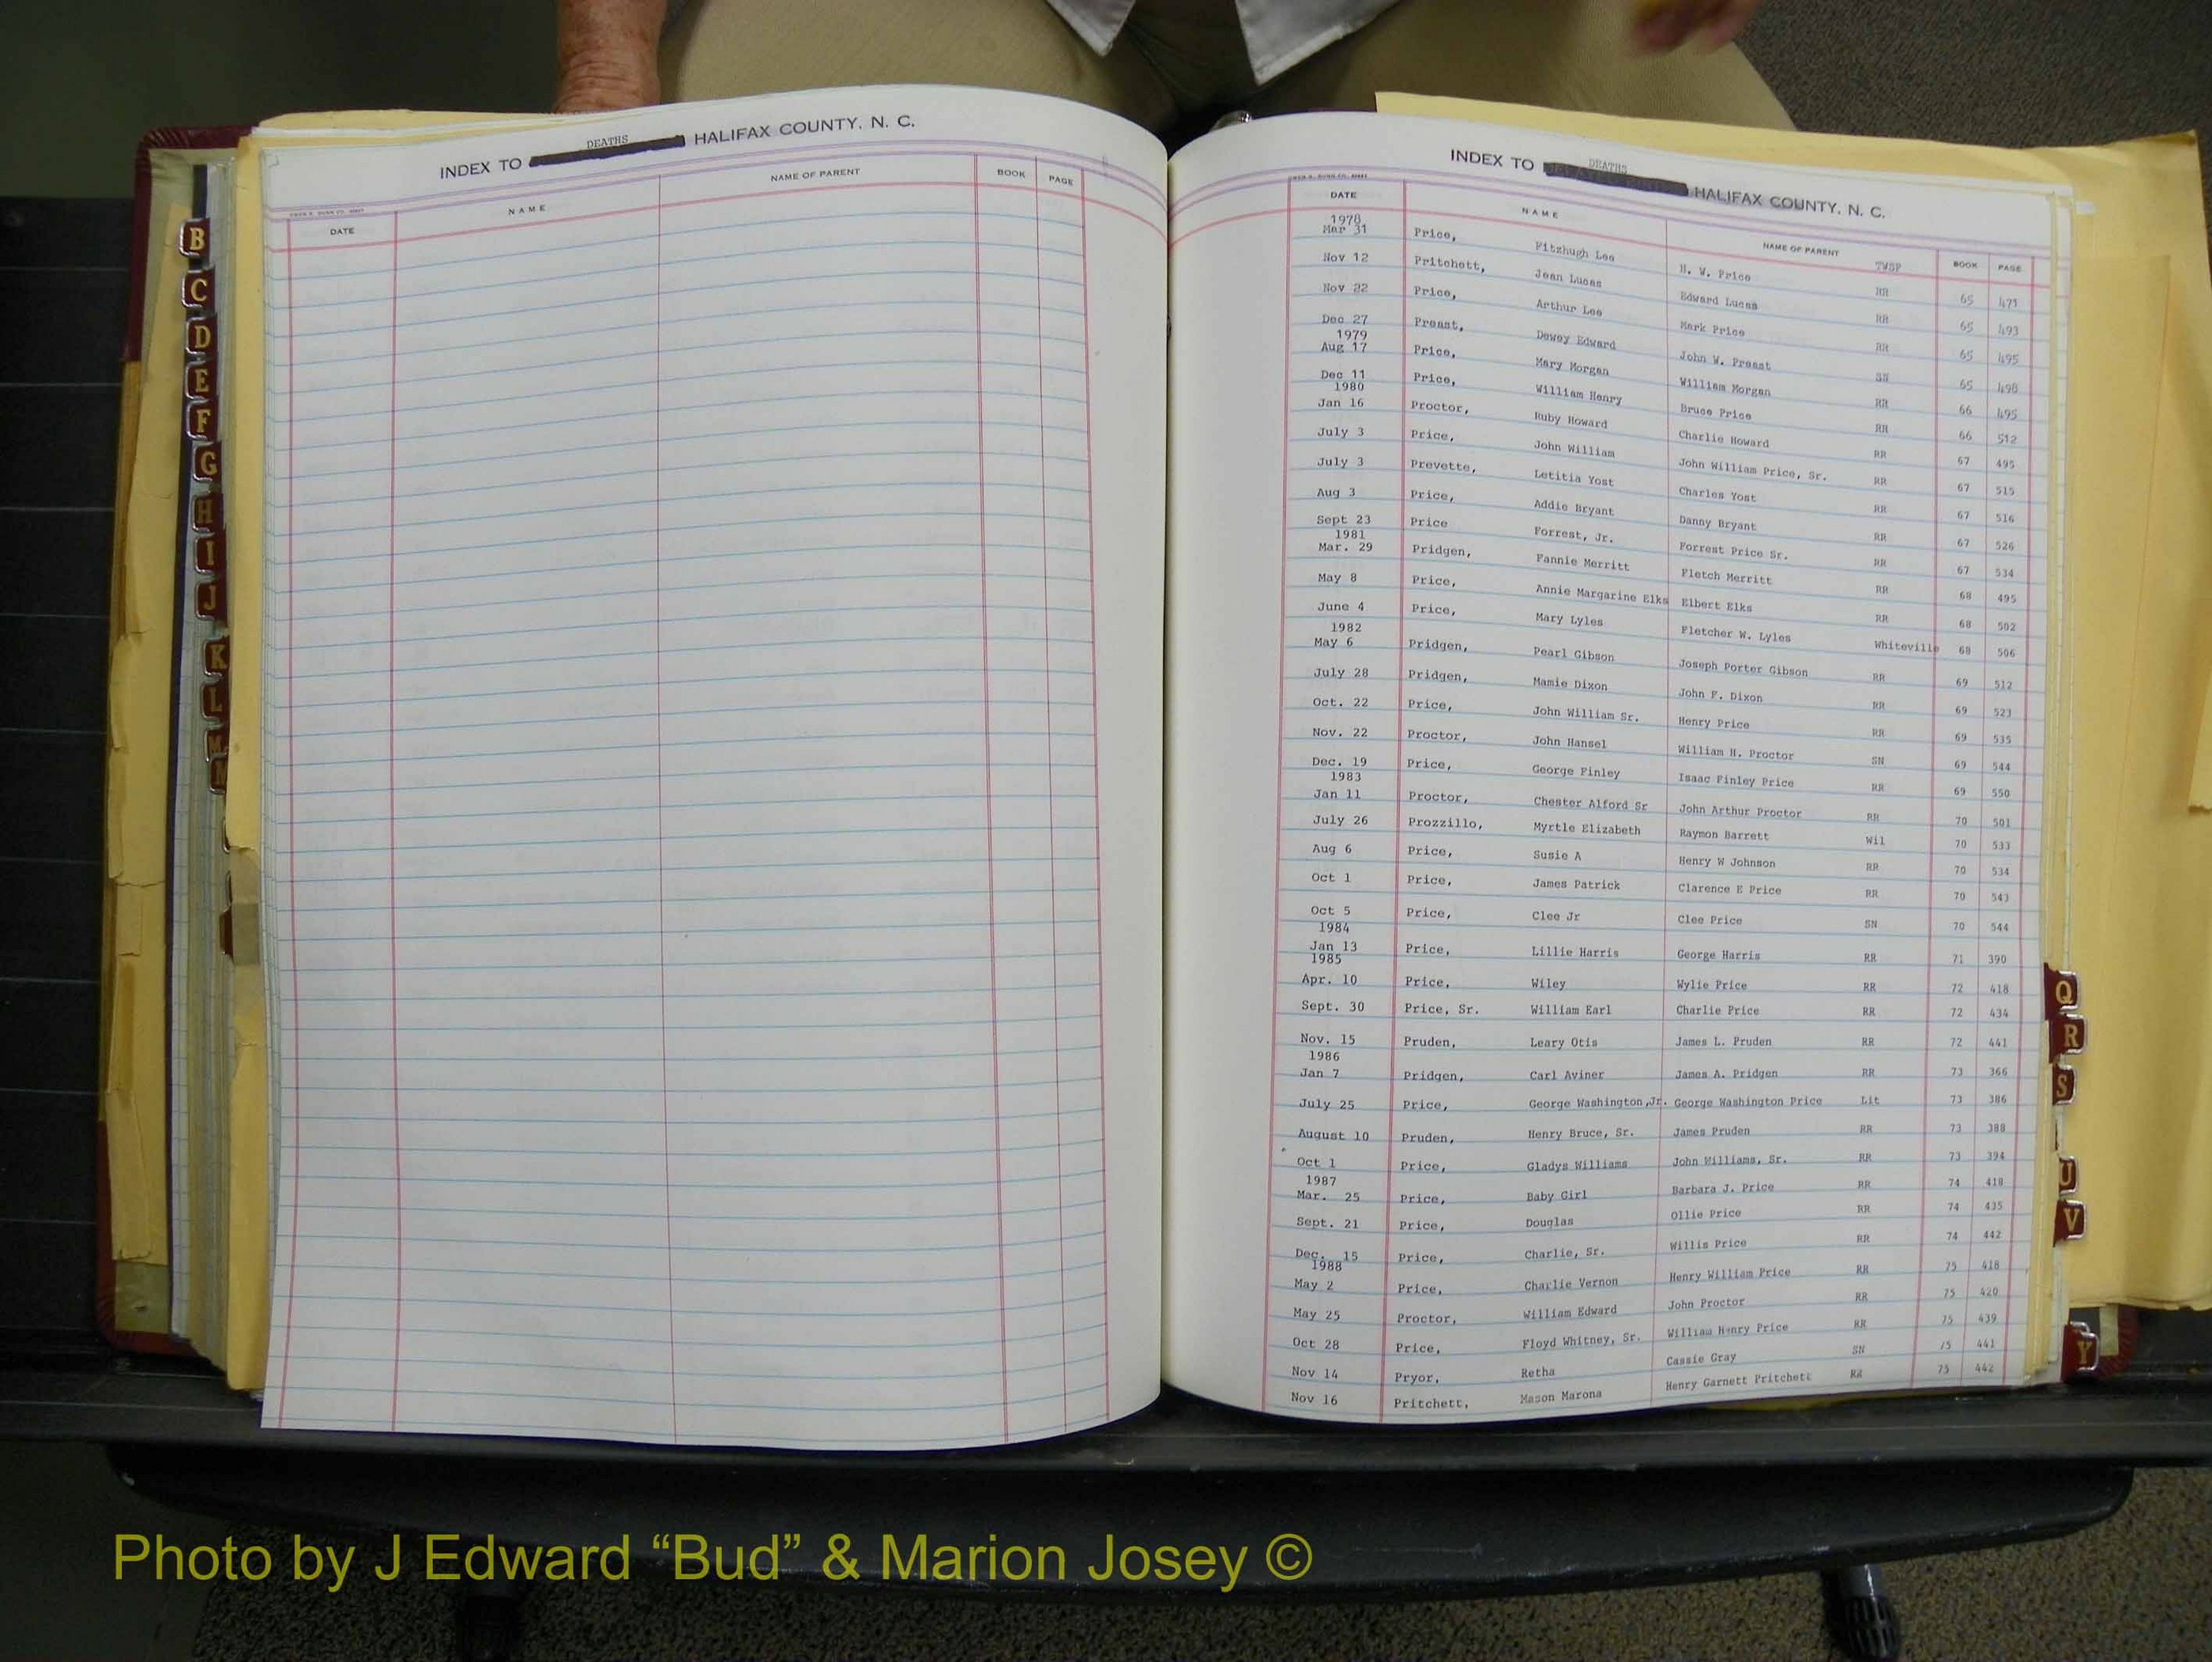 INDEX TO DEATHS HALIFAX COUNTY, N. C.
DATE NAME NAME OF PARENT BOOK PAGE
B
C
D
E
F
G
H
I
J
K
L
M
N
INDEX TO DEATHS HALIFAX COUNTY, N. C.
DATE NAME NAME OF PARENT TWSP BOOK PAGE
1978
Mar 31 Price, Fitzhugh Lee H. W. Price RR 65 471
Nov 12 Pritchett, Jean Lucas Edward Lucas RR 65 493
Nov 22 Price, Arthur Lee Mark Price RR 65 495
Dec 27 Proast, Dewey Edward John W. Proast SN 65 498
1979
Aug 17 Price, Mary Morgan William Morgan RR 66 495
Dec 11 Price, William Henry Bruce Price RR 66 512
1980
Jan 16 Proctor, Ruby Howard Charlie Howard RR 67 495
July 3 Price, John William John William Price, Sr. RR 67 515
July 3 Prevette, Letitia Yost Charles Yost RR 67 516
Aug 3 Price, Addie Bryant Danny Bryant RR 67 526
Sept 23 Price Forrest, Jr. Forrest Price Sr. RR 67 534
1981
Mar. 29 Pridgen, Fannie Merritt Fletch Merritt RR 68 495
May 8 Price, Annie Margarine Elks Elbert Elks RR 68 502
June 4 Price, Mary Lyles Fletcher W. Lyles Whiteville 68 506
1982
May 6 Pridgen, Pearl Gibson Joseph Porter Gibson RR 69 512
July 28 Pridgen, Mamie Dixon John F. Dixon RR 69 523
Oct. 22 Price, John William Sr. Henry Price RR 69 535
Nov. 22 Proctor, John Hansel William H. Proctor SN 69 544
Dec. 19 Price, George Finley Isaac Finley Price RR 69 550
1983
Jan 11 Proctor, Chester Alford Sr John Arthur Proctor RR 70 501
July 26 Prozzillo, Myrtle Elizabeth Raymon Barrett Wil 70 533
Aug 6 Price, Susie A Henry W Johnson RR 70 534
Oct 1 Price, James Patrick Clarence E Price RR 70 543
Oct 5 Price, Clee Jr Clee Price SN 70 544
1984
Jan 13 Price, Lillie Harris George Harris RR 71 390
1985
Apr. 10 Price, Wiley Wylie Price RR 72 418
Sept. 30 Price, Sr. William Earl Charlie Price RR 72 434
Nov. 15 Pruden, Leary Otis James L. Pruden RR 72 441
1986
Jan 7 Pridgen, Carl Aviner James A. Pridgen RR 73 366
July 25 Price, George Washington,Jr. George Washington Price Lit 73 386
August 10 Pruden, Henry Bruce, Sr. James Pruden RR 73 388
Oct 1 Price, Gladys Williams John Williams, Sr. RR 73 394
1987
Mar. 25 Price, Baby Girl Barbara J. Price RR 74 418
Sept. 21 Price, Douglas Ollie Price RR 74 435
Dec. 15 Price, Charlie, Sr. Willis Price RR 74 442
1988
May 2 Price, Charlie Vernon Henry William Price RR 75 418
May 25 Proctor, William Edward John Proctor RR 75 420
Oct 28 Price, Floyd Whitney, Sr. William Henry Price RR 75 439
Nov 14 Pryor, Retha Cassie Gray SN 75 441
Nov 16 Pritchett, Mason Marona Henry Garnett Pritchett RR 75 442
Q
R
S
U
V
Y
Photo by J Edward “Bud” & Marion Josey ©